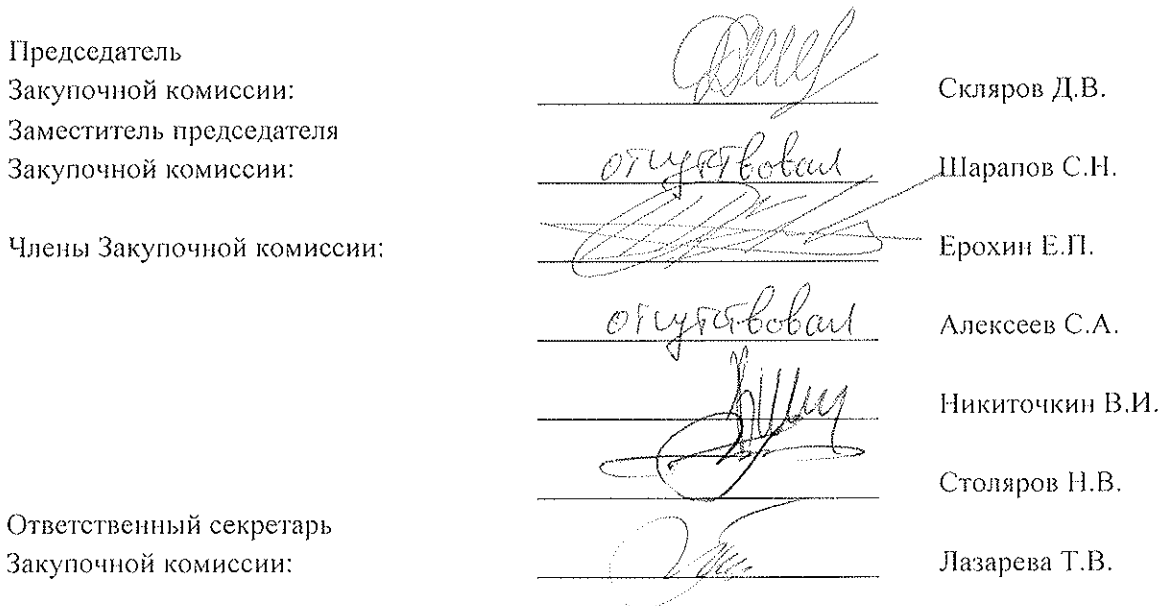 Председатель
Закупочной комиссии: Скляров Д.В.
Заместитель председателя
Закупочной комиссии: отсутствовал Шарапов С.Н.
Члены Закупочной комиссии: Ерохин Е.П.
отсутствовал Алексеев С.А.
Никиточкин В.И.
Столяров Н.В.
Ответственный секретарь
Закупочной комиссии: Лазарева Т.В.